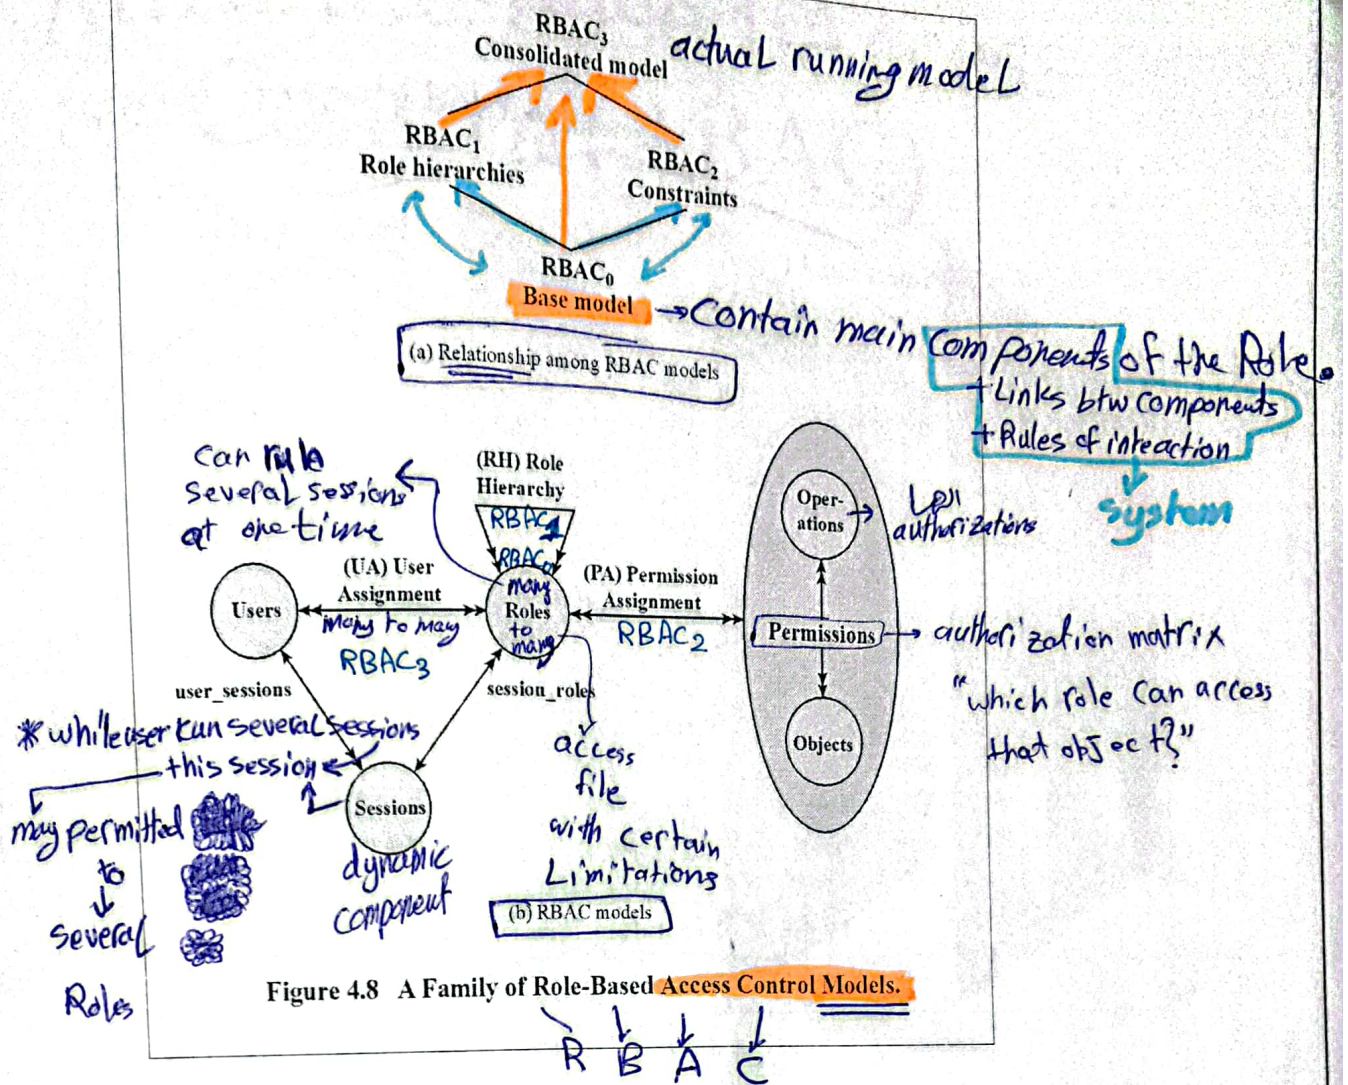 RBAC3
Consolidated model
actual running model
RBAC1
Role hierarchies
RBAC2
Constraints
RBAC0
Base model
→Contain main components of the Role.
+Links btw components
+Rules of inteaction
system
(a) Relationship among RBAC models
can rule
several sessions
at one time
(RH) Role
Hierarchy
RBAC1
RBAC0
many
Roles
to
many
(UA) User
Assignment
many to many
RBAC3
Users
(PA) Permission
Assignment
RBAC2
Oper-
ations
authorizations
Permissions
authorization matrix
"which role can access
that object?"
Objects
user_sessions
session_roles
*while user run several sessions
this session
may permitted
to
several
Roles
Sessions
dynamic
component
access
file
with certain
Limitations
(b) RBAC models
Figure 4.8 A Family of Role-Based Access Control Models.
R B A C